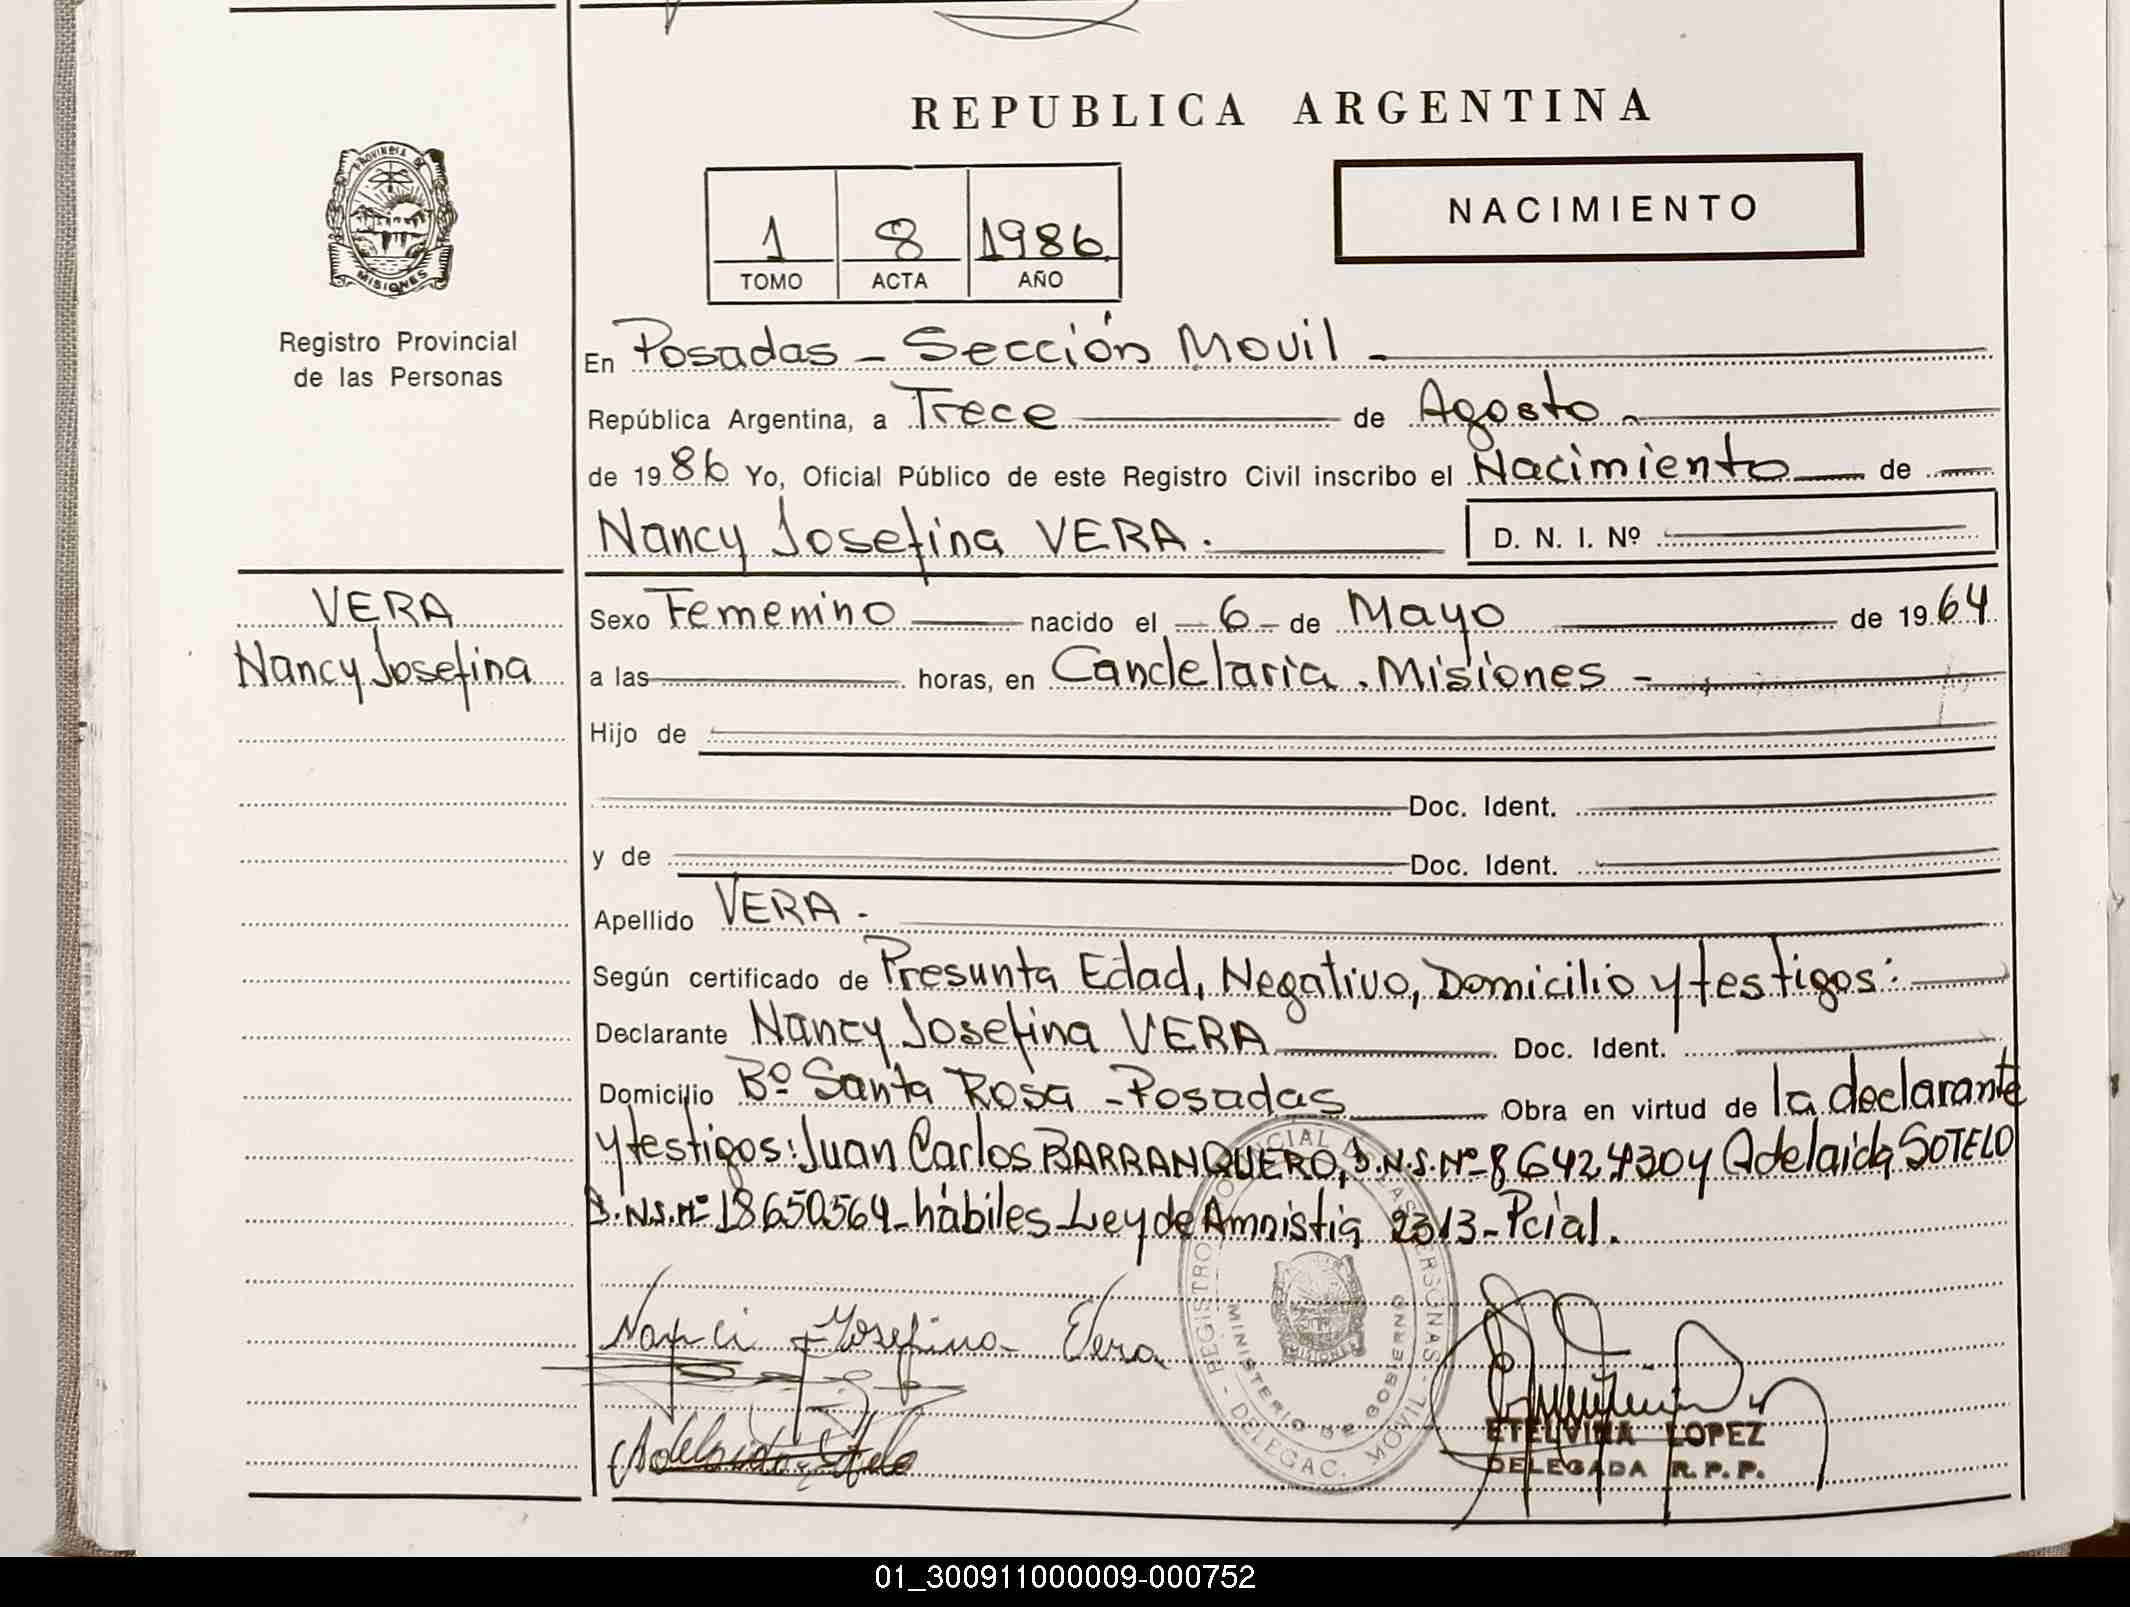 REPUBLICA ARGENTINA
PROVINCIA DE
MISIONES
Registro Provincial
de las Personas
1 8 1986
TOMO ACTA AÑO
NACIMIENTO
En Posadas - Sección Movil -
República Argentina, a Trece de Agosto
de 1986 Yo, Oficial Público de este Registro Civil inscribo el Nacimiento de
Nancy Josefina VERA. D. N. I. Nº
VERA
Nancy Josefina
Sexo Femenino nacido el 6 de Mayo de 1964
a las horas, en Candelaria. Misiones -
Hijo de
Doc. Ident.
y de Doc. Ident.
Apellido VERA.-
Según certificado de Presunta Edad, Negativo, Domicilio y testigos:
Declarante Nancy Josefina VERA Doc. Ident.
Domicilio Bº Santa Rosa - Posadas Obra en virtud de la declarante
y testigos: Juan Carlos BARRANQUERO, D.N.I. Nº 8642430 y Adelaida SOTELO
D.N.I. Nº 18650564 - hábiles Ley de Amnistia 2313 - Pcial.
Nanci Josefina Vera
Adelaida Sotelo
REGISTRO PROVINCIAL DE LAS PERSONAS - DELEGAC. MOVIL -
MINISTERIO DE GOBIERNO
MISIONES
ETELVINA LOPEZ
DELEGADA R.P.P.
01_300911000009-000752